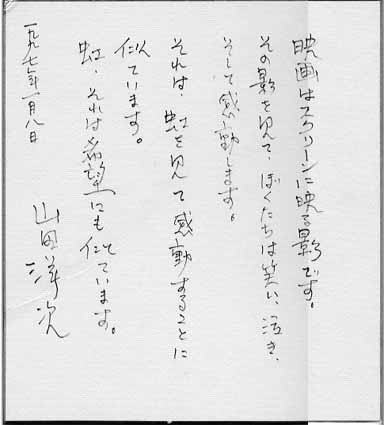 映画はスクリーンに映る影です。
その影を見て、ぼくたちは笑い、泣き、
そして感動します。
それは、虹を見て感動することに
似ています。
虹、それは希望にも似ています。
一九九七年一月八日
山田洋次